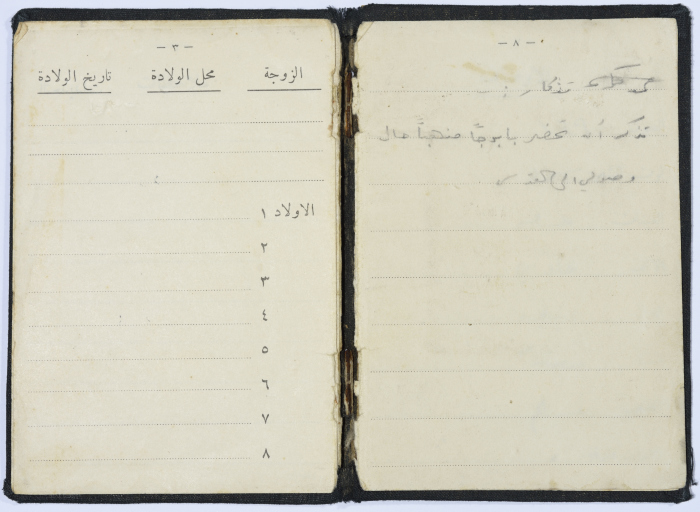 - ٨ -
تذكار :-
تذكر أن تحضر بابوجًا مذهبًا حال
وصولي الى القدس
- ٣ -
الزوجة محل الولادة تاريخ الولادة
الاولاد ١
٢
٣
٤
٥
٦
٧
٨